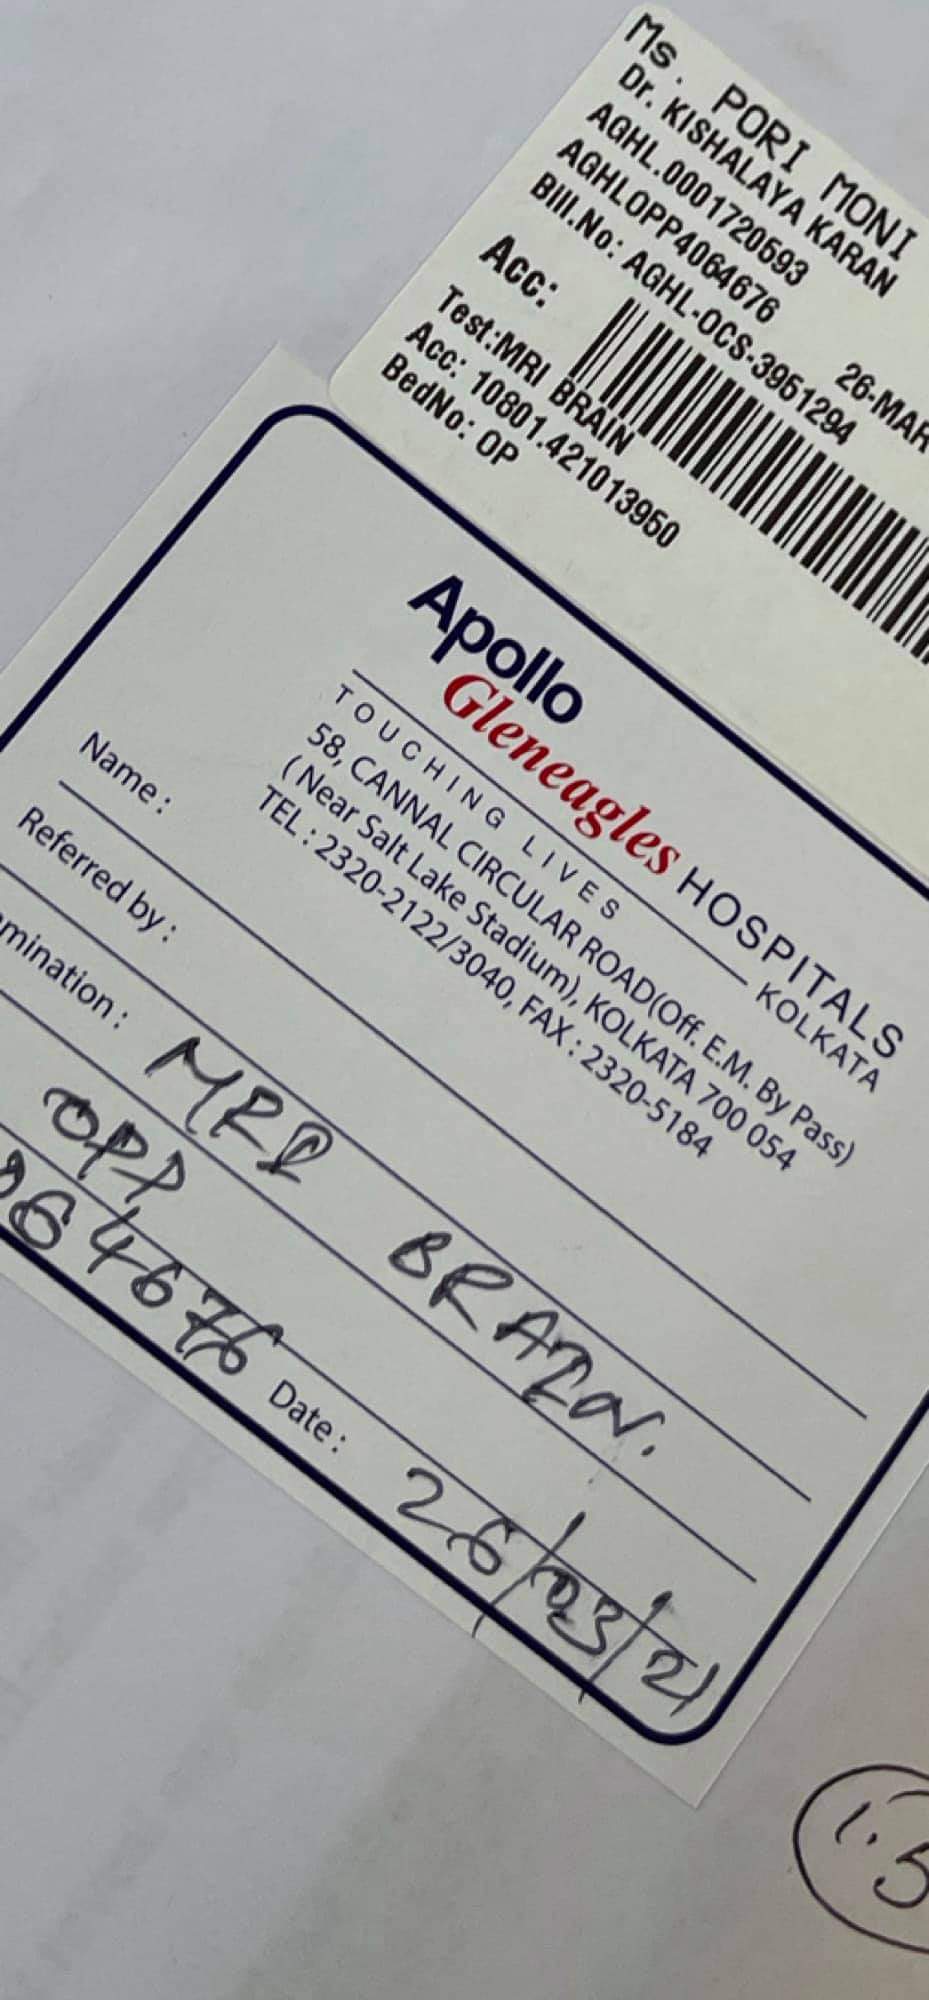 Ms. PORI MONI
Dr. KISHALAYA KARAN
AGHL.0001720593
AGHLOPP4064676
Bill.No: AGHL-OCS-3951294
26-MAR
Acc:
Test:MRI BRAIN
Acc: 10801.421013950
BedNo: OP
Apollo
Gleneagles HOSPITALS
TOUCHING LIVES KOLKATA
58, CANNAL CIRCULAR ROAD(Off. E.M. By Pass)
(Near Salt Lake Stadium), KOLKATA 700 054
TEL : 2320-2122/3040, FAX : 2320-5184
Name :
Referred by :
mination : MRI BRAIN.
OPP
64676 Date : 26/03/21
1.5